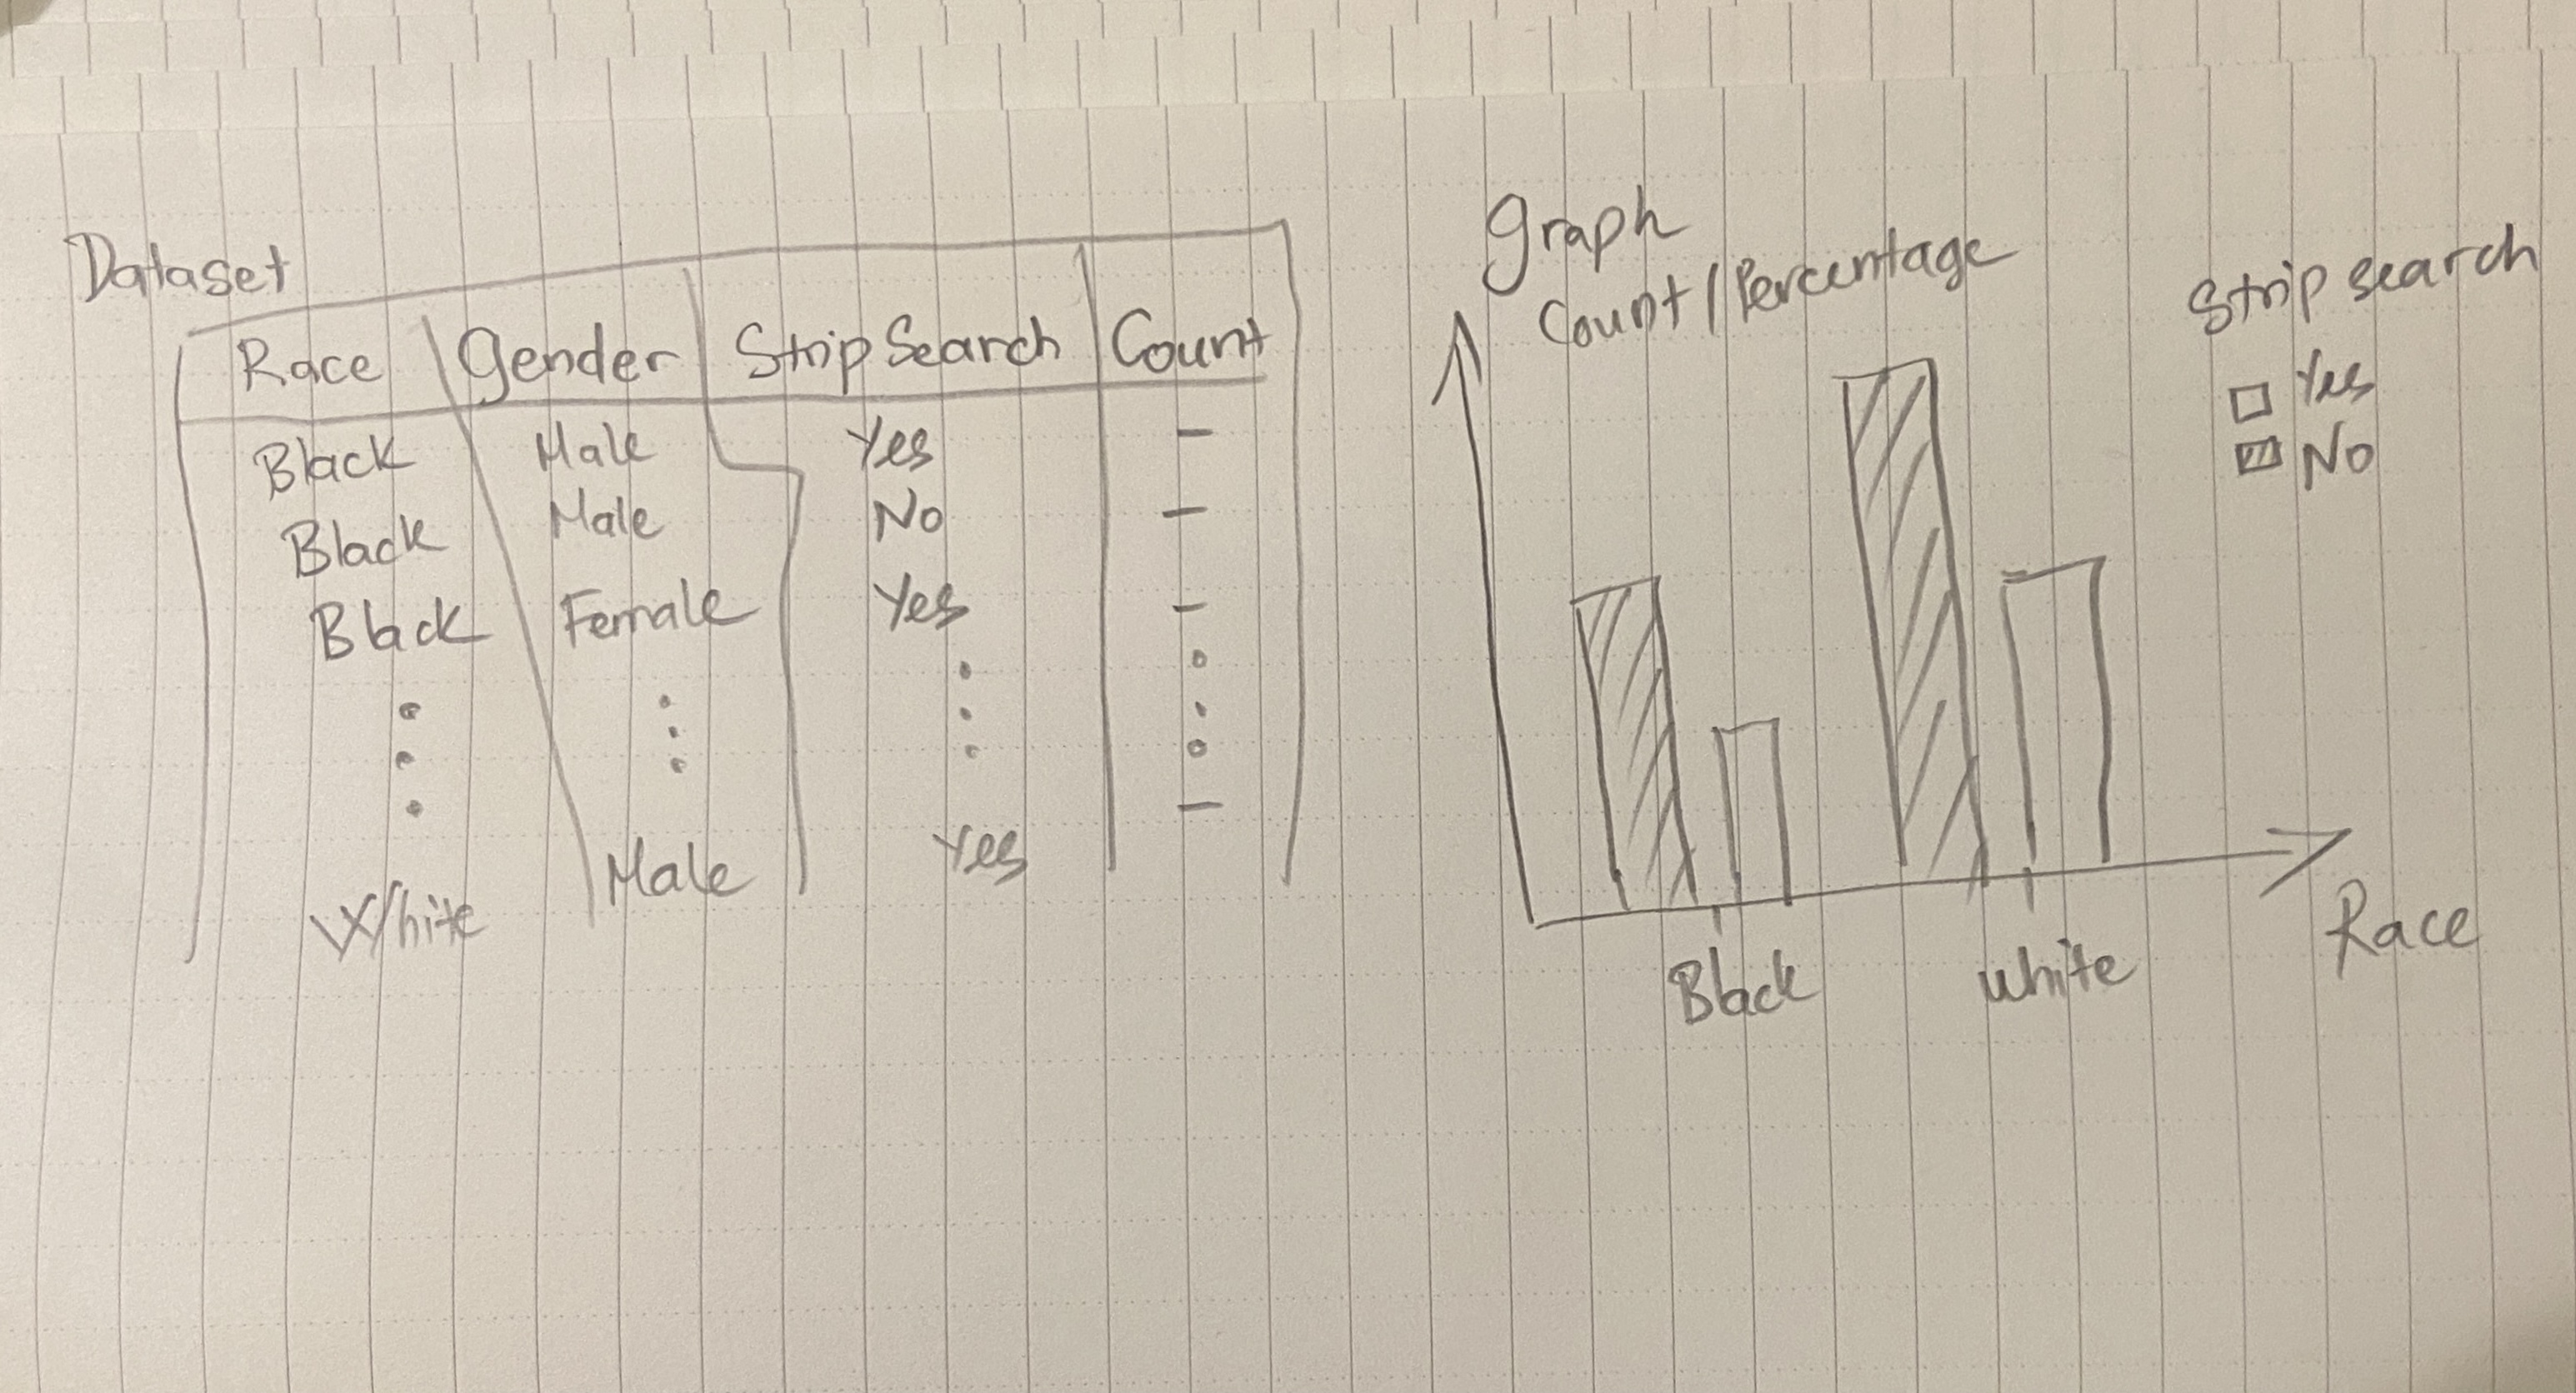 Dataset
Race Gender Strip Search Count
Black Male Yes –
Black Male No –
Black Female Yes –
White Male Yes –
Graph
Count/Percentage
Strip search
Yes
No
Black white
Race